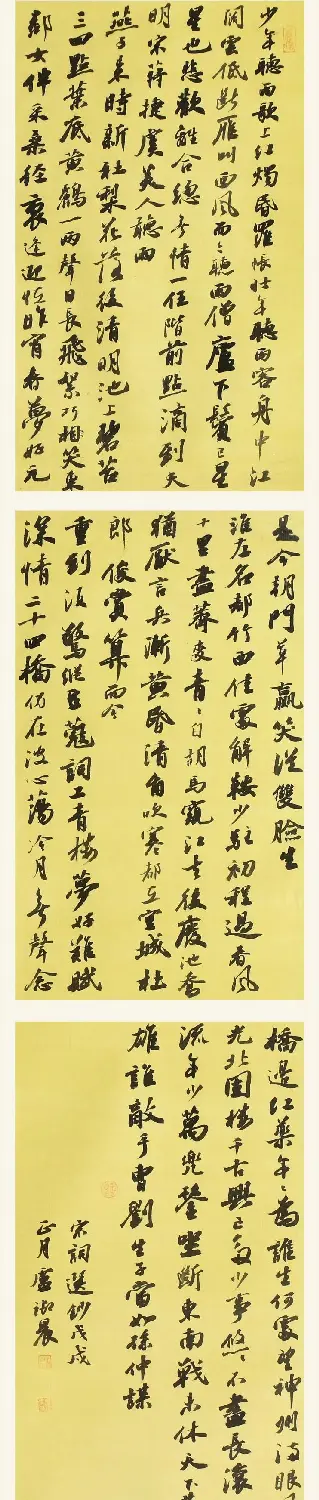 少年聽雨歌上紅燭昏羅帳壯年聽雨客舟中江
闊雲低斷雁叫西風而今聽雨僧廬下鬢已星
星也悲歡離合總無情一任階前點滴到天
明宋蔣捷虞美人聽雨
燕子來時新社梨花落後清明池上碧苔
三四點葉底黃鸝一兩聲日長飛絮巧相笑東
鄰女伴采桑徑裏逢迎怪昨宵春夢好元
是今朝鬥草贏笑從雙臉生
淮左名都竹西佳處解鞍少駐初程過春風
十里盡薺麥青々自胡馬窺江去後廢池喬
猶厭言兵漸黃昏清角吹寒都在空城杜
郎俊賞算而今
重到須驚縱豆蔻詞工青樓夢好難賦
深情二十四橋仍在波心蕩冷月無聲念
橋邊紅藥年々為誰生何處望神州滿眼風
光北固樓千古興亡多少事悠々不盡長滾
流年少萬兜鍪坐斷東南戰未休天下英
雄誰敵手曹劉生子當如孫仲謀
宋詞選鈔戊戌
正月盧淑晨